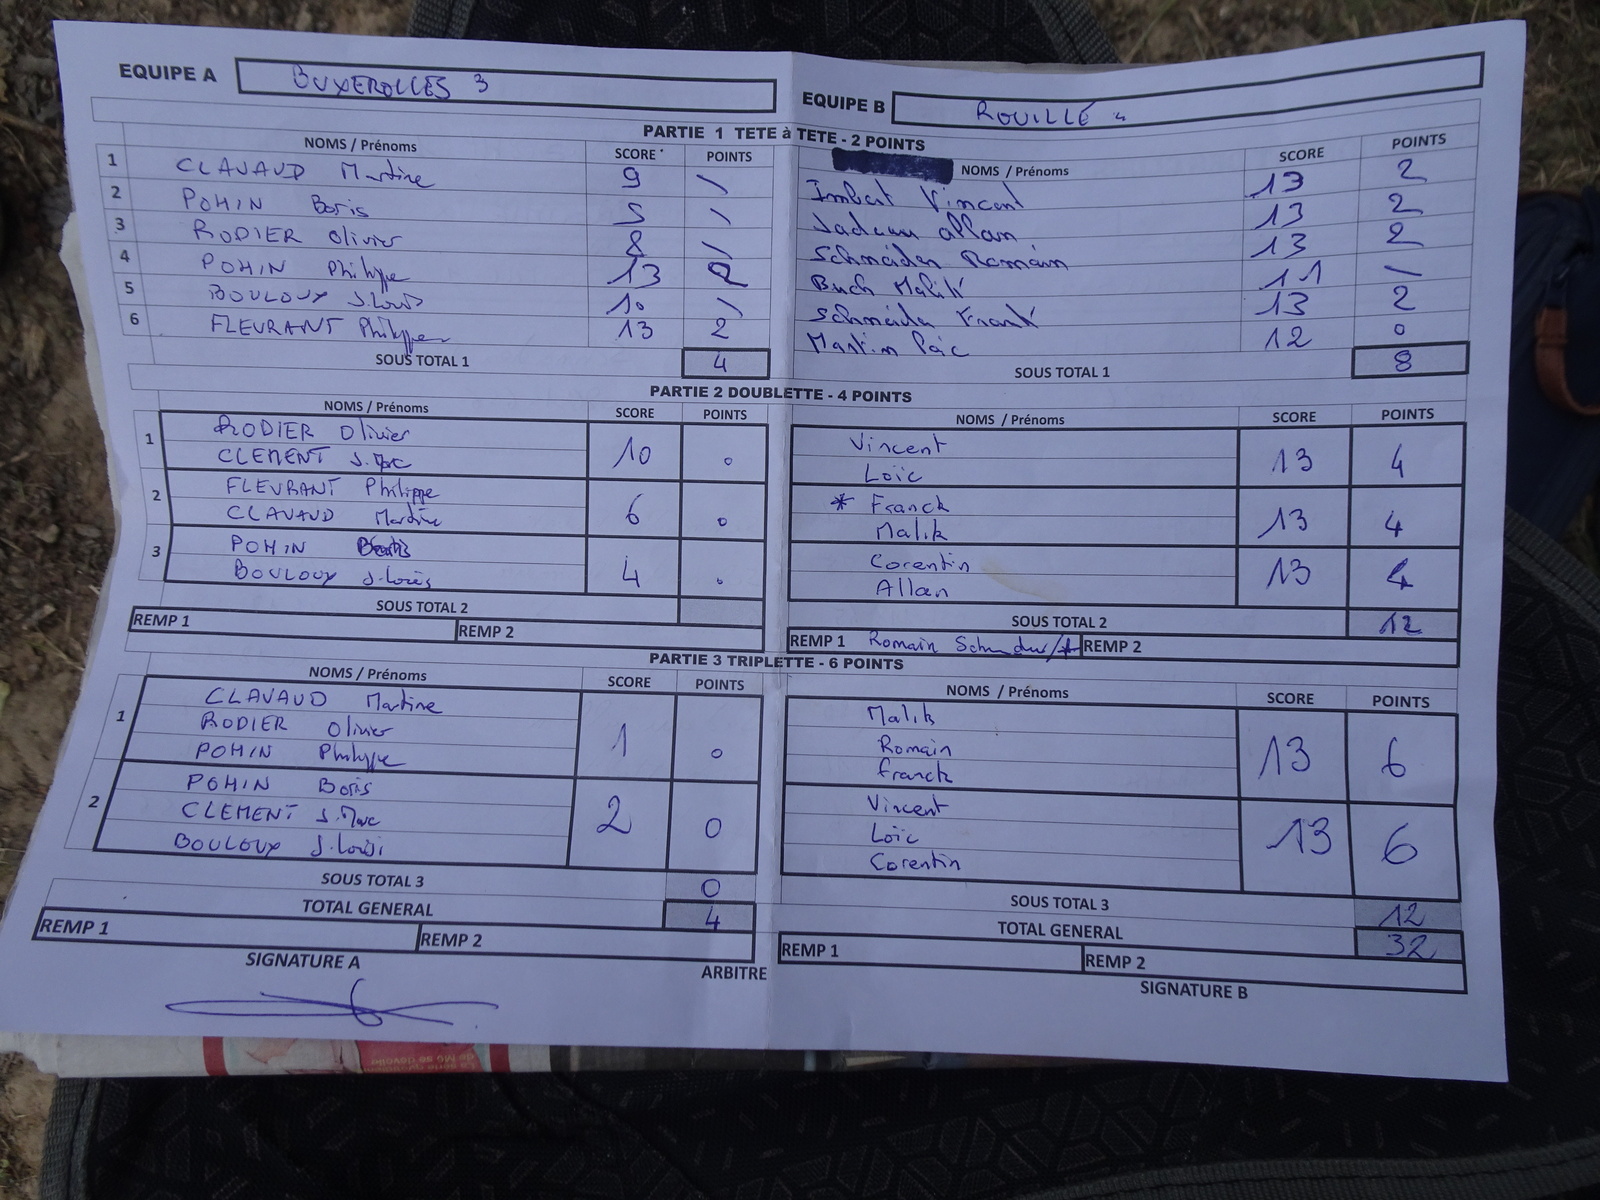 EQUIPE A BUXEROLLES 3
EQUIPE B ROUILLÉ 4
PARTIE 1 TETE à TETE - 2 POINTS
NOMS / Prénoms SCORE POINTS NOMS / Prénoms SCORE POINTS
1 CLAVAUD Martine 9 \ Imbert Vincent 13 2
2 POHIN Boris 5 \ Jadeau allan 13 2
3 RODIER Olivier 8 \ Schneider Romain 13 2
4 POHIN Philippe 13 2 Buch Malik 11 \
5 BOULOUX J.Louis 10 \ Schneider Franck 13 2
6 FLEURANT Philippe 13 2 Martin Loïc 12 0
SOUS TOTAL 1 4 SOUS TOTAL 1 8
PARTIE 2 DOUBLETTE - 4 POINTS
NOMS / Prénoms SCORE POINTS NOMS / Prénoms SCORE POINTS
1 RODIER Olivier 10 0 Vincent 13 4
CLEMENT J.Marc Loïc
2 FLEURANT Philippe 6 0 * Franck 13 4
CLAVAUD Martine Malik
3 POHIN Boris 4 0 Corentin 13 4
BOULOUX J.Louis Allan
SOUS TOTAL 2 SOUS TOTAL 2 12
REMP 1 REMP 2 REMP 1 Romain /* REMP 2
PARTIE 3 TRIPLETTE - 6 POINTS
NOMS / Prénoms SCORE POINTS NOMS / Prénoms SCORE POINTS
1 CLAVAUD Martine 1 0 Malik 13 6
RODIER Olivier Romain
POHIN Philippe franck
2 POHIN Boris 2 0 Vincent 13 6
CLEMENT J.Marc Loïc
BOULOUX J.Louis Corentin
SOUS TOTAL 3 0 SOUS TOTAL 3 12
TOTAL GENERAL 4 TOTAL GENERAL 32
REMP 1 REMP 2 REMP 1 REMP 2
SIGNATURE A ARBITRE SIGNATURE B